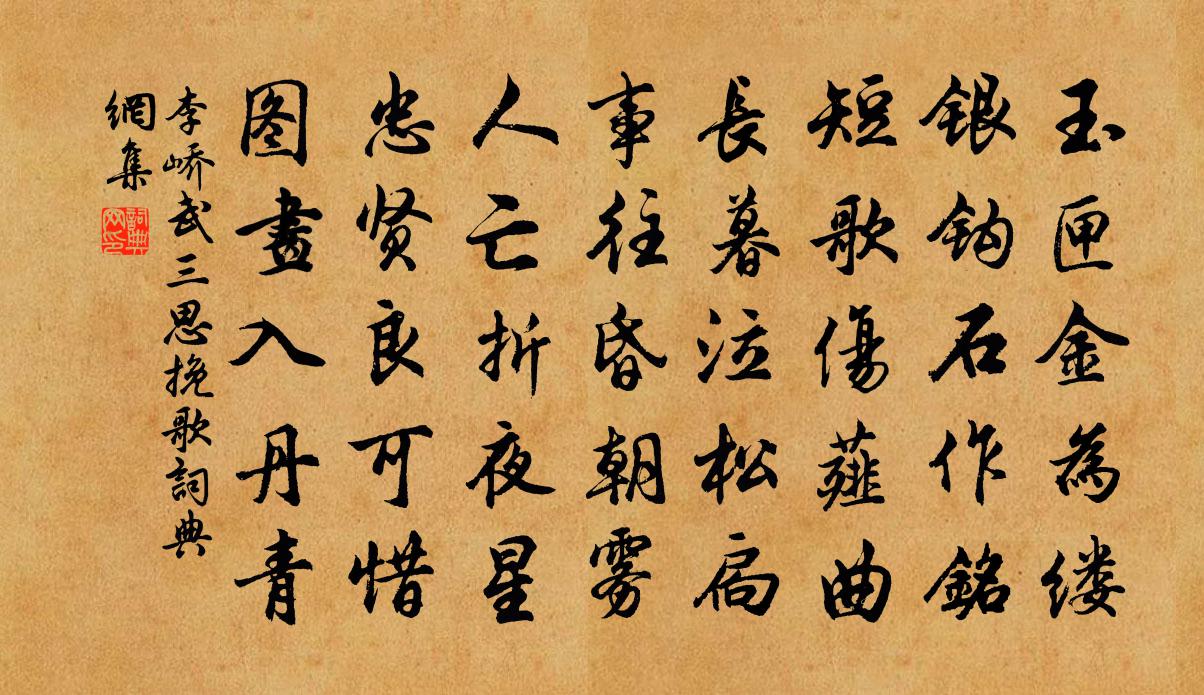 玉匣金為缕
銀钩石作銘
短歌傷薤曲
長暮泣松扃
事往昏朝雾
人亡折夜星
忠贤良可惜
图畫入丹青
李峤武三思挽歌詞典
網集
詞典
网印